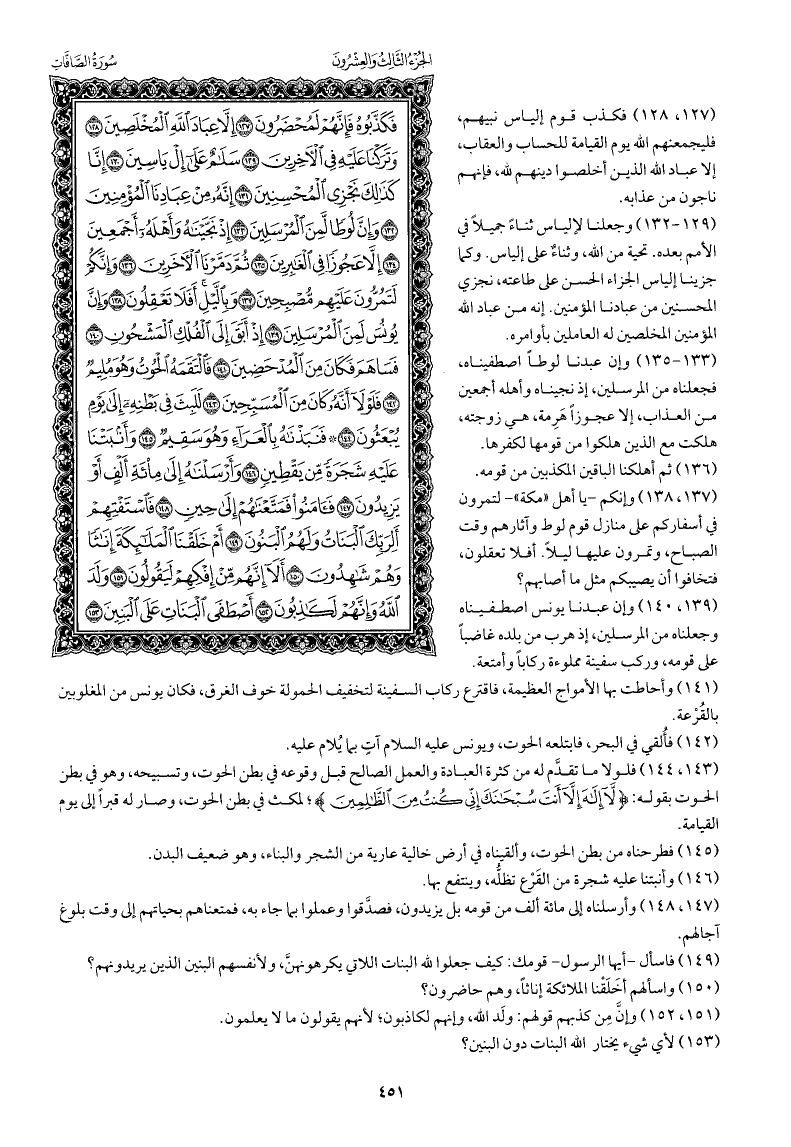 الجزء الثالث والعشرون
سورة الصافات
فَكَذَّبُوهُ فَإِنَّهُمْ لَمُحْضَرُونَ ١٢٧ إِلَّا عِبَادَ اللَّهِ الْمُخْلَصِينَ ١٢٨
وَتَرَكْنَا عَلَيْهِ فِي الْآخِرِينَ ١٢٩ سَلَامٌ عَلَىٰ إِلْ يَاسِينَ ١٣٠ إِنَّا
كَذَٰلِكَ نَجْزِي الْمُحْسِنِينَ ١٣١ إِنَّهُ مِنْ عِبَادِنَا الْمُؤْمِنِينَ
١٣٢ وَإِنَّ لُوطًا لَّمِنَ الْمُرْسَلِينَ ١٣٣ إِذْ نَجَّيْنَاهُ وَأَهْلَهُ أَجْمَعِينَ
١٣٤ إِلَّا عَجُوزًا فِي الْغَابِرِينَ ١٣٥ ثُمَّ دَمَّرْنَا الْآخَرِينَ ١٣٦ وَإِنَّكُمْ
لَتَمُرُّونَ عَلَيْهِم مُّصْبِحِينَ ١٣٧ وَبِاللَّيْلِ ۗ أَفَلَا تَعْقِلُونَ ١٣٨ وَإِنَّ
يُونُسَ لَمِنَ الْمُرْسَلِينَ ١٣٩ إِذْ أَبَقَ إِلَى الْفُلْكِ الْمَشْحُونِ ١٤٠
فَسَاهَمَ فَكَانَ مِنَ الْمُدْحَضِينَ ١٤١ فَالْتَقَمَهُ الْحُوتُ وَهُوَ مُلِيمٌ
١٤٢ فَلَوْلَا أَنَّهُ كَانَ مِنَ الْمُسَبِّحِينَ ١٤٣ لَلَبِثَ فِي بَطْنِهِ إِلَىٰ يَوْمِ
يُبْعَثُونَ ١٤٤ ۞ فَنَبَذْنَاهُ بِالْعَرَاءِ وَهُوَ سَقِيمٌ ١٤٥ وَأَنبَتْنَا
عَلَيْهِ شَجَرَةً مِّن يَقْطِينٍ ١٤٦ وَأَرْسَلْنَاهُ إِلَىٰ مِائَةِ أَلْفٍ أَوْ
يَزِيدُونَ ١٤٧ فَآمَنُوا فَمَتَّعْنَاهُمْ إِلَىٰ حِينٍ ١٤٨ فَاسْتَفْتِهِمْ
أَلِرَبِّكَ الْبَنَاتُ وَلَهُمُ الْبَنُونَ ١٤٩ أَمْ خَلَقْنَا الْمَلَائِكَةَ إِنَاثًا
وَهُمْ شَاهِدُونَ ١٥٠ أَلَا إِنَّهُم مِّنْ إِفْكِهِمْ لَيَقُولُونَ ١٥١ وَلَدَ
اللَّهُ وَإِنَّهُمْ لَكَاذِبُونَ ١٥٢ أَصْطَفَى الْبَنَاتِ عَلَى الْبَنِينَ ١٥٣
(١٢٧، ١٢٨) فكذب قوم إلياس نبيهم،
فليجمعنهم الله يوم القيامة للحساب والعقاب،
إلا عباد الله الذين أخلصوا دينهم لله، فإنهم
ناجون من عذابه.
(١٢٩-١٣٢) وجعلنا لإلياس ثناءً جميلاً في
الأمم بعده. تحية من الله، وثناءٌ على إلياس. وكما
جزينا إلياس الجزاء الحسن على طاعته، نجزي
المحسنين من عبادنا المؤمنين. إنه من عباد الله
المؤمنين المخلصين له العاملين بأوامره.
(١٣٣-١٣٥) وإن عبدنا لوطاً اصطفيناه،
فجعلناه من المرسلين، إذ نجيناه وأهله أجمعين
من العذاب، إلا عجوزاً هَرِمة، هي زوجته،
هلكت مع الذين هلكوا من قومها لكفرها.
(١٣٦) ثم أهلكنا الباقين المكذبين من قومه.
(١٣٧، ١٣٨) وإنكم -يا أهل «مكة»- لتمرون
في أسفاركم على منازل قوم لوط وآثارهم وقت
الصباح، وتمرون عليها ليلاً. أفلا تعقلون،
فتخافوا أن يصيبكم مثل ما أصابهم؟
(١٣٩، ١٤٠) وإن عبدنا يونس اصطفيناه
وجعلناه من المرسلين، إذ هرب من بلده غاضباً
على قومه، وركب سفينة مملوءة ركاباً وأمتعة.
(١٤١) وأحاطت بها الأمواج العظيمة، فاقترع ركاب السفينة لتخفيف الحمولة خوف الغرق، فكان يونس من المغلوبين
بالقُرْعة.
(١٤٢) فأُلقي في البحر، فابتلعه الحوت، ويونس عليه السلام آتٍ بما يُلام عليه.
(١٤٣، ١٤٤) فلولا ما تقدَّم له من كثرة العبادة والعمل الصالح قبل وقوعه في بطن الحوت، وتسبيحه، وهو في بطن
الحوت بقوله: ﴿لَّا إِلَٰهَ إِلَّا أَنتَ سُبْحَانَكَ إِنِّي كُنتُ مِنَ الظَّالِمِينَ﴾؛ لمكث في بطن الحوت، وصار له قبراً إلى يوم
القيامة.
(١٤٥) فطرحناه من بطن الحوت، وألقيناه في أرض خالية عارية من الشجر والبناء، وهو ضعيف البدن.
(١٤٦) وأنبتنا عليه شجرة من القَرْع تظلُّه، وينتفع بها.
(١٤٧، ١٤٨) وأرسلناه إلى مائة ألف من قومه بل يزيدون، فصدَّقوا وعملوا بما جاء به، فمتعناهم بحياتهم إلى وقت بلوغ
آجالهم.
(١٤٩) فاسأل -أيها الرسول- قومك: كيف جعلوا لله البنات اللاتي يكرهونهنَّ، ولأنفسهم البنين الذين يريدونهم؟
(١٥٠) واسألهم أخَلَقْنا الملائكة إناثاً، وهم حاضرون؟
(١٥١، ١٥٢) وإنَّ مِن كذبهم قولهم: ولَد الله، وإنهم لكاذبون؛ لأنهم يقولون ما لا يعلمون.
(١٥٣) لأي شيء يختار الله البنات دون البنين؟
٤٥١